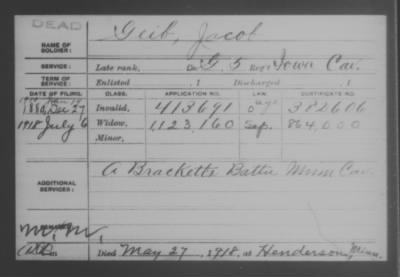 DEAD
NAME OF SOLDIER: Geib, Jacob
SERVICE: Late rank, Co. G, 5 Reg't Iowa Cav.
TERM OF SERVICE: Enlisted , 1 Discharged , 1
DATE OF FILING. CLASS. APPLICATION NO. LAW. CERTIFICATE NO.
1880, Dec 27 Invalid, 413691 382606
1918 July 6 Widow, 1,123,160 Sep. 864,000
Minor,
ADDITIONAL SERVICES: A Bracketts Battn Minn Cav.
Died May 27, 1918, at Henderson, Minn.